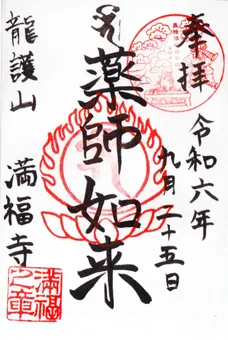 奉拝
令和六年
九月二十五日
薬師如来
龍護山
満福寺
満福
之章